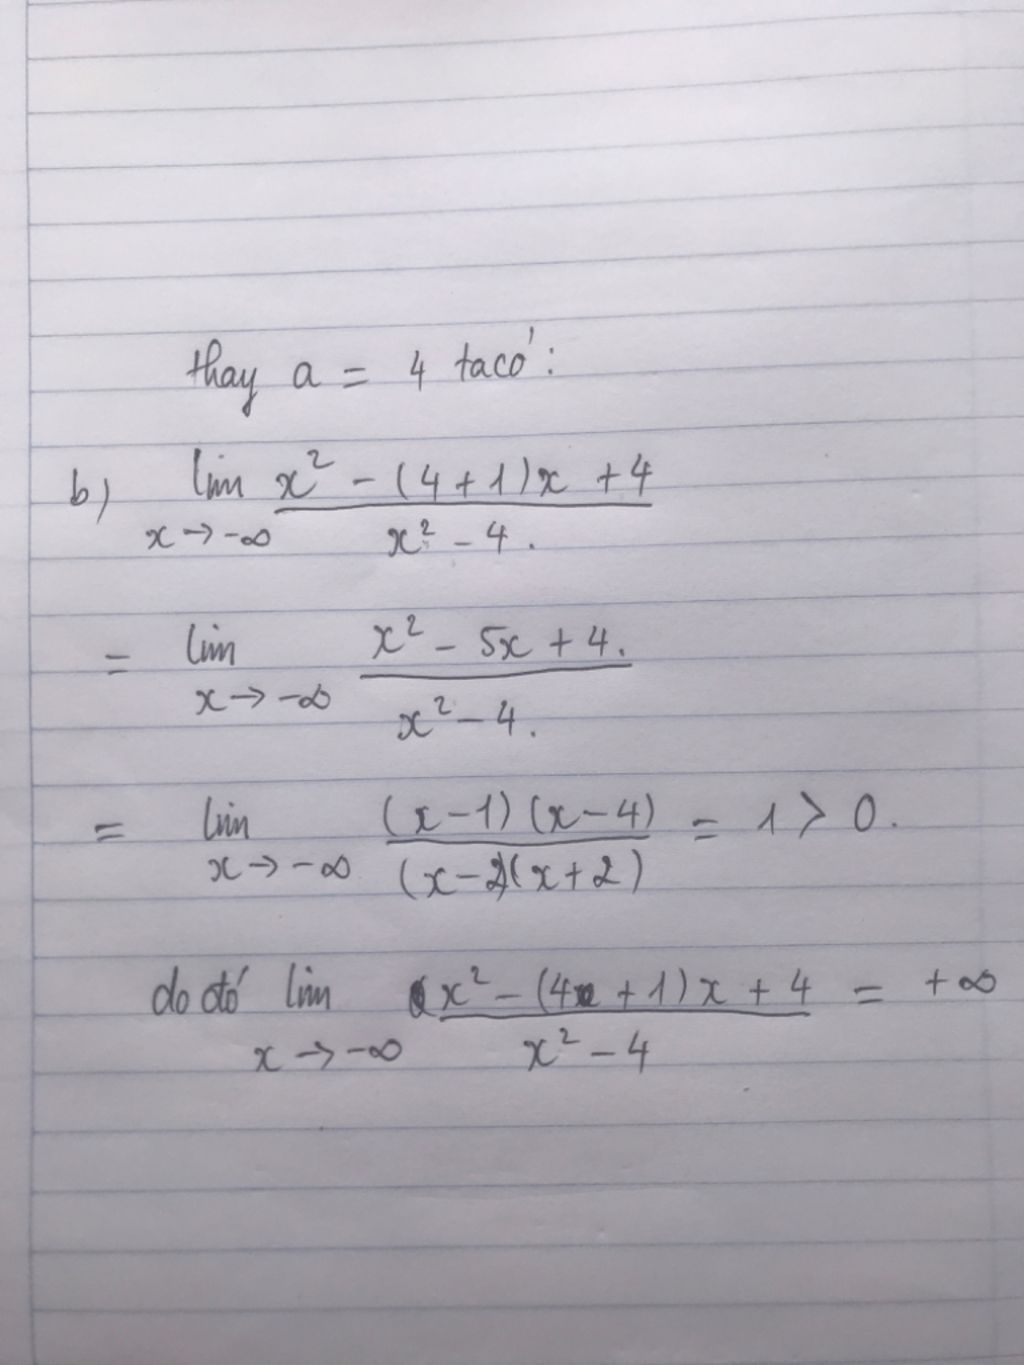 thay a = 4 ta có:
b) lim x² - (4+1)x + 4
x → -∞ x² - 4.
= lim x² - 5x + 4.
x → -∞ x² - 4.
= lim (x-1)(x-4) = 1 > 0.
x → -∞ (x-2)(x+2)
do đó lim x² - (4+1)x + 4 = +∞
x → -∞ x² - 4